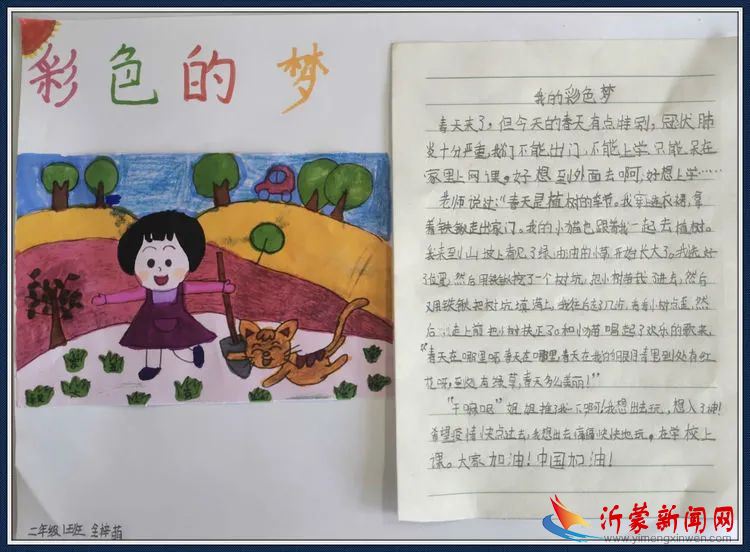 彩色的梦
我的彩色梦
春天来了，但今天的春天有点特别，冠状肺
炎十分严重，我们不能出门，不能上学，只能呆在
家里上网课。好想到外面去啊，好想上学……
老师说过：“春天是植树的季节。我穿连衣裙，拿
着铁锹走出家门。我的小猫也跟着我一起去植树。
来到小山坡上看见了绿油油的小草开始长大了。我选好
了位置，然后用铁锹挖了一个树坑，把小树苗栽了进去，然后
又用铁锹把树坑填满土。我往后走了几步，看看小树点歪，然
后走上前把小树扶正了。和小猫唱起了欢乐的歌来，
“春天在哪里呀春天在哪里，春天在我的眼睛里到处有红
花呀，到处有绿草，春天多么美丽！”
“干嘛呢”姐姐推了我一下啊！我想出去玩，想入了神！
希望疫情快点过去，我想出去痛痛快快地玩。在学校上
课。大家加油！中国加油！
二年级1班
沂蒙新闻网
www.yimengxinwen.com